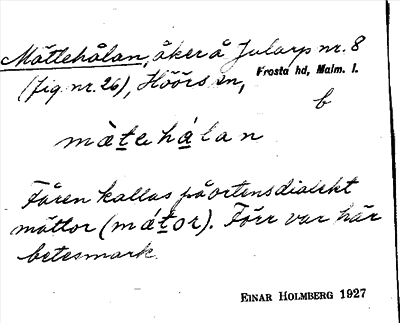 Måttehålan, åker å Jularp nr. 8
(fig. nr. 26), Höörs sn, Frosta hd, Malm. l.
b
màtehálan
Fåren kallas på ortens dialekt
måttor (mátor). Förr var här
betesmark.
EINAR HOLMBERG 1927